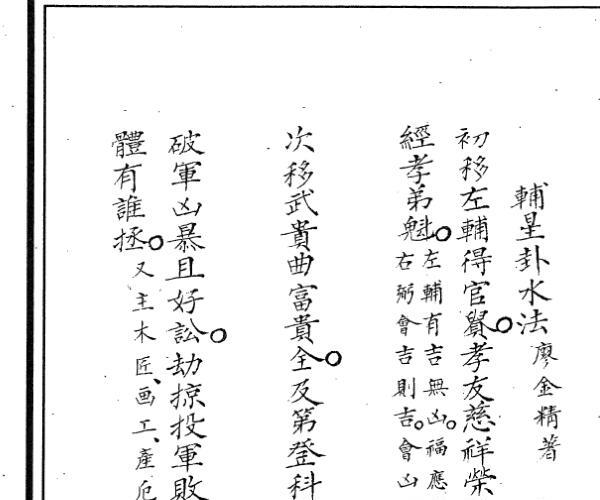 輔星卦水法廖金精著
初移左輔得官貲。孝友慈祥榮
經孝弟魁。左輔有吉無凶。福應
右弼會吉則吉。會凶
次移武貴曲富貴全。及第登科
破軍凶暴且好訟。劫掠投軍敗
體有誰拯。又主木匠、画工、產厄